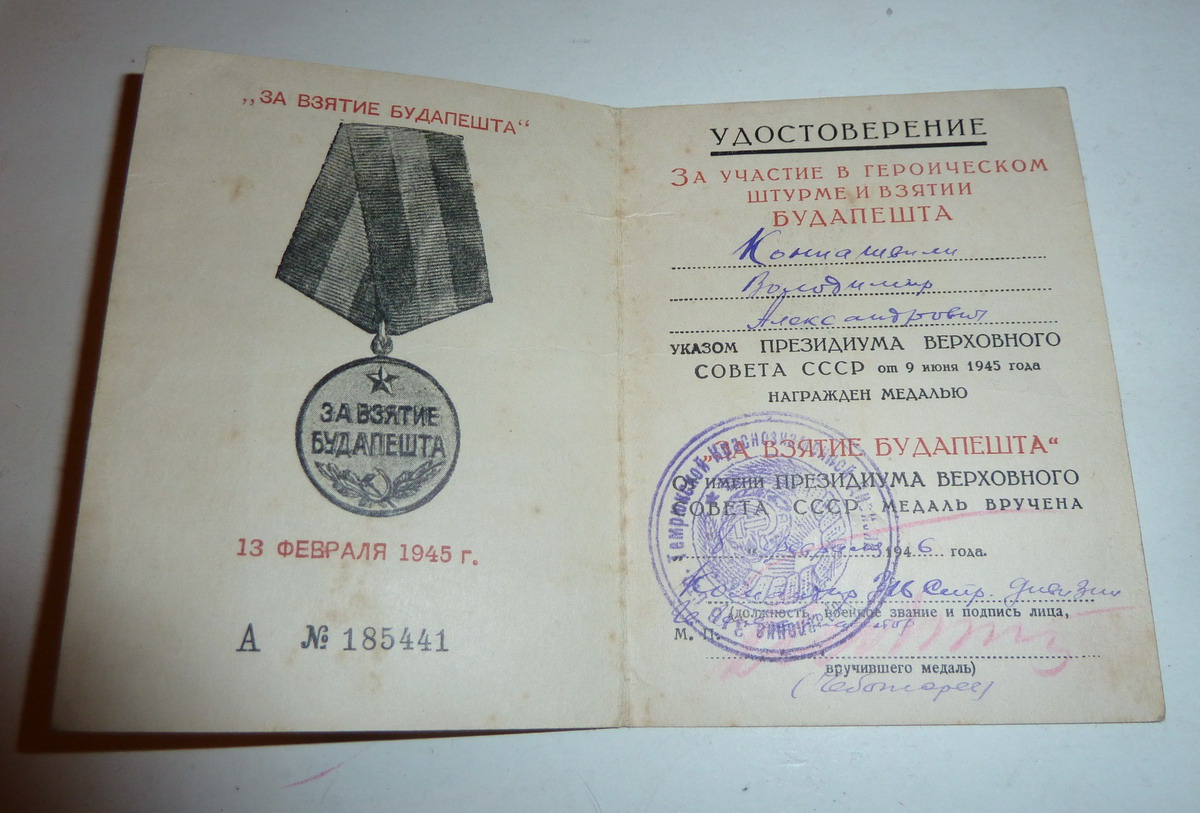 „ЗА ВЗЯТИЕ БУДАПЕШТА“
ЗА ВЗЯТИЕ
БУДАПЕШТА
13 ФЕВРАЛЯ 1945 г.
А № 185441
УДОСТОВЕРЕНИЕ
ЗА УЧАСТИЕ В ГЕРОИЧЕСКОМ
ШТУРМЕ И ВЗЯТИИ
БУДАПЕШТА
Володимир
Александрович
УКАЗОМ ПРЕЗИДИУМА ВЕРХОВНОГО
СОВЕТА СССР от 9 июня 1945 года
НАГРАЖДЕН МЕДАЛЬЮ
„ЗА ВЗЯТИЕ БУДАПЕШТА“
От имени ПРЕЗИДИУМА ВЕРХОВНОГО
СОВЕТА СССР МЕДАЛЬ ВРУЧЕНА
февраля 1946 года.
Командир Стр. дивизии
(должность, военное звание и подпись лица,
М. П.
вручившего медаль)
(Чеботарев)
Темрюкской Краснознаменной